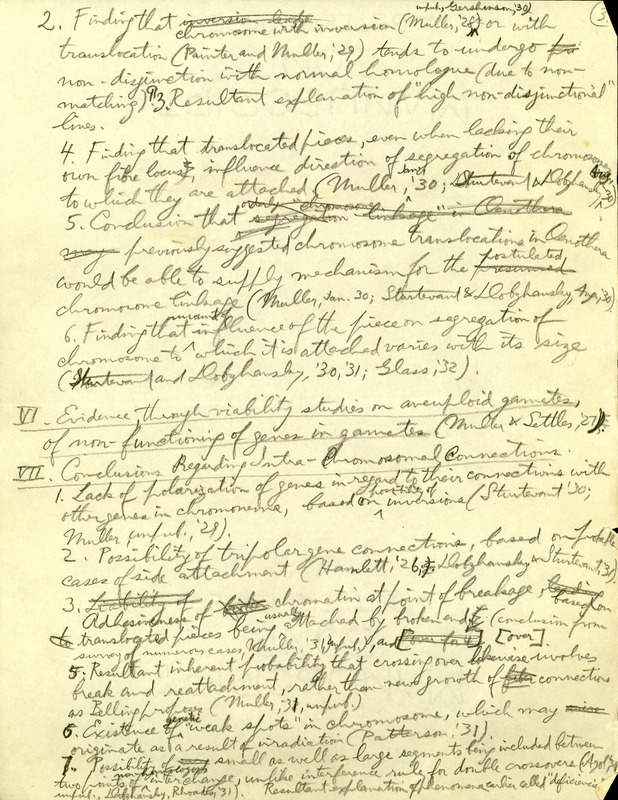 3.
unpub., Gershenson, '30)
2. Finding that inversion leads chromosome with inversion (Muller, '28) or with
translocation (Painter and Muller, '29) tends to undergo
non-disjunction with normal homologue (due to non-
matching) ¶3. Resultant explanation of "high non-disjunctional"
lines.
4. Finding that translocated pieces, even when lacking their
own fibre locus, influence direction of segregation of chromosome
to which they are attached (Muller, Jan. '30; Sturtevant & Dobzhansky, Aug. '30)
5. Conclusion that segregation "linkage" in Oenothera
may previously suggested chromosome translocations in Oenothera
would be able to supply mechanism for the presumed postulated
chromosome linkage (Muller, Jan. 30; Sturtevant & Dobzhansky, Aug. '30)
6. Finding that influence of the piece on segregation of
chromosome to which it is attached varies with its size
(Sturtevant and Dobzhansky, '30, '31; Glass, '32).
VI. Evidence through viability studies on aneuploid gametes,
of non-functioning of genes in gametes (Muller & Settles, '27).
VII. Conclusions Regarding Intra-Chromosomal Connections.
1. Lack of polarization of genes in regard to their connections with
other genes in chromoneme, based on possibility of inversions (Sturtevant '30;
Muller unpub., '28).
2. Possibility of tripolar gene connections, based on probable
cases of side attachment (Hamlett, '26; Dobzhansky & Sturtevant, '31).
3. Liability of Adhesiveness of chromatin at point of breakage, based on
translocated pieces being usually attached by broken end (conclusion from
survey of numerous cases, Muller, '31, unpub.), and [over for 4] [over].
5. Resultant inherent probability that crossing over likewise involves
break and reattachment, rather than new growth of connections
as Belling proposes (Muller, '31, unpub.)
6. Existence of genetic "weak spots" in chromosome, which may
originate as a result of irradiation (Patterson, '31).
7. Possibility of small as well as large segments being included between
two points of interchange, unlike interference rule for double crossovers
unpub., Dobzhansky, Rhoades, '31). Resultant explanation of phenomena earlier called "deficiencies"